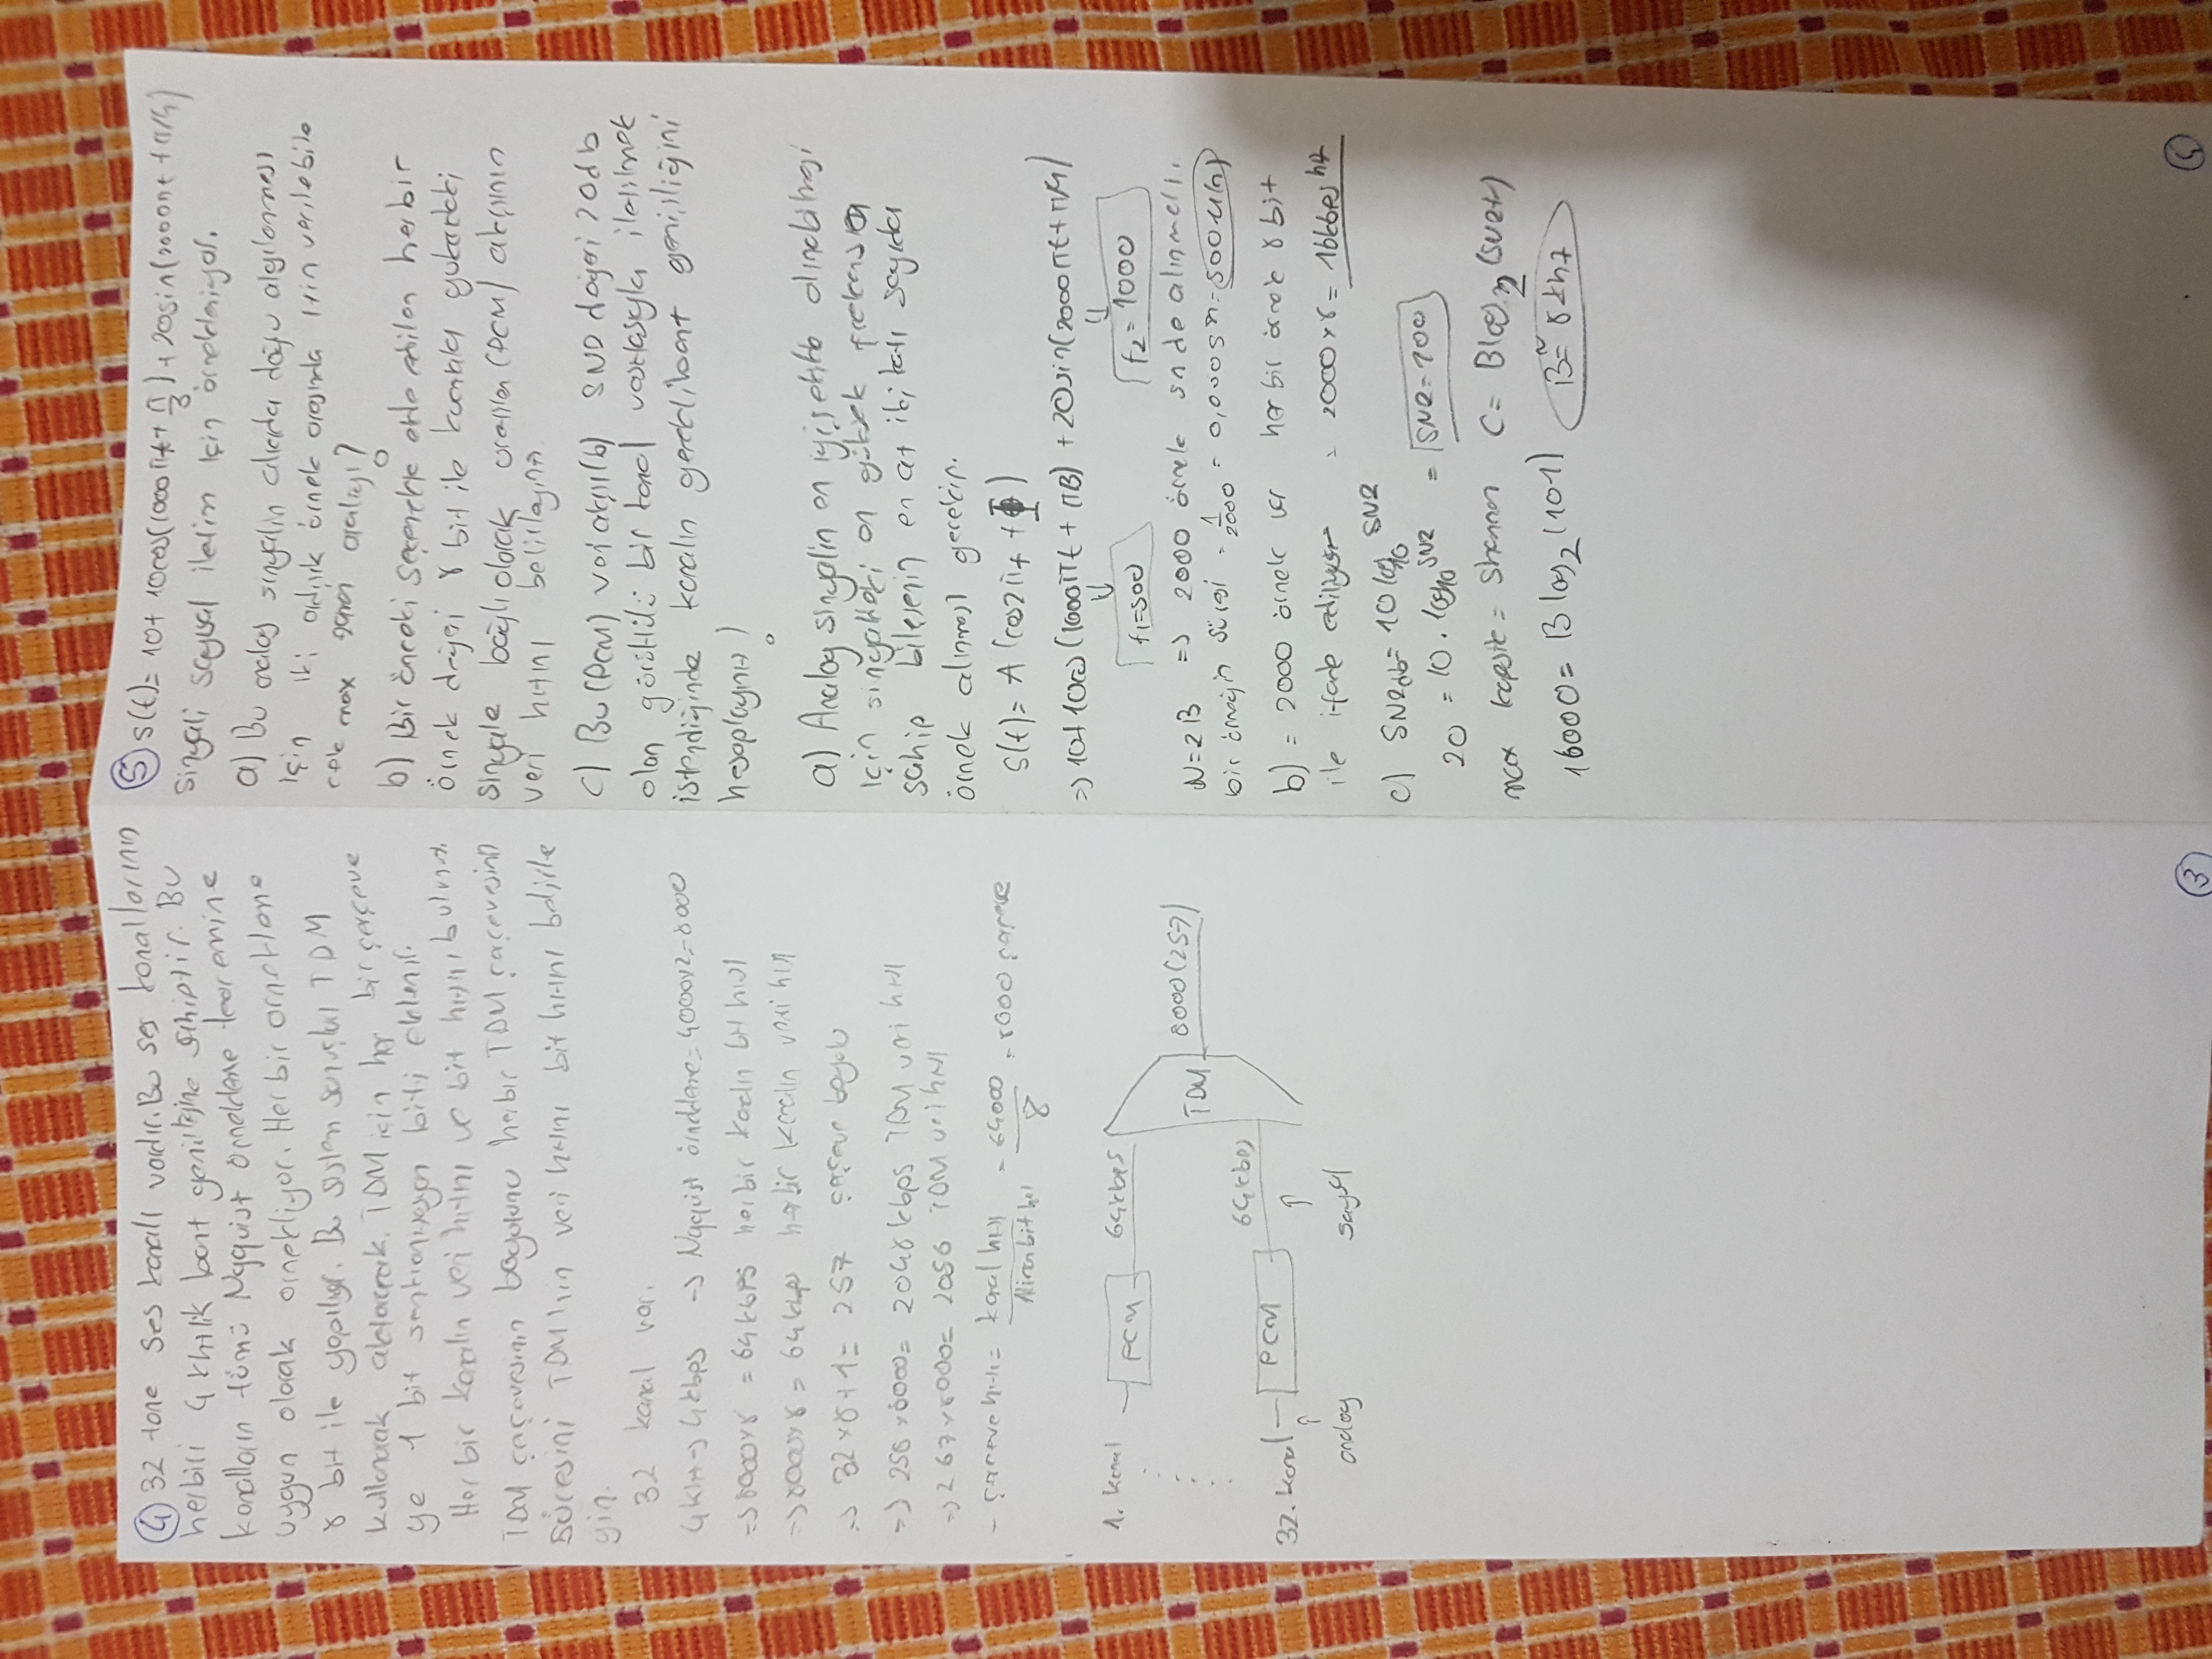 ④ 32 tane ses kanalı vardır. Bu ses kanallarının
herbiri 4 khz lik bant genişliğine sahiptir. Bu
kanalların tümü Nyquist örnekleme teoremine
uygun olarak örnekliyor. Her bir örnekleme
8 bit ile yapılıyor. Bu sistem TDM
kullanarak aktaracak. TDM için her bir çerçeve
ye 1 bit senkronizasyon biti eklenir.
Her bir kanalın veri hızını ve bit hızını bulunuz.
TDM çerçevesinin boyutunu herbir TDM çerçevesinin
süresini TDM'nin veri hızını bit hızını belirle
yin.
32 kanal var.
4khz → 4kbps → Nyquist örnekleme = 4000x2 = 8000
=> 8000x8 = 64kbps her bir kanalın bit hızı
=> 8000x8 = 64kbps her bir kanalın veri hızı
=> 32x8+1 = 257 çerçeve boyutu
=> 256x8000 = 2048 kbps TDM veri hızı
=> 267x8000 = 2056 TDM veri hızı
- çerçeve hızı = kanal hızı / Alınan bit hızı = 64000 / 8 = 8000 çerçeve
1. kanal PCM 64kbps
TDM 8000(257)
32. kanal PCM 64kbps
analog sayısal
③
⑤ s(t)= 10+ 10cos(1000πt + π/3) + 20sin(2000πt + π/4)
sinyali sayısal iletim için örnekleniyor.
a) Bu analog sinyalin alıcıda doğru algılanması
için iki ardışık örnek arasında izin verilebile
cek max zaman aralığı?
b) Bir önceki seçenekte elde edilen herbir
örnek değeri 8 bit ile yukarıdaki
sinyale bağlı olarak üretilen (PCM) akışının
veri hızını belirleyiniz.
c) Bu (PCM) veri akışı(b) SND değeri 20db
olan gürültülü bir kanal vasıtasıyla iletilmek
istendiğinde kanalın gerekli bant genişliğini
hesaplayınız!
a) Analog sinyalin en iyi şekilde alınabilmesi
için sinyaldeki en yüksek frekansa
sahip bileşenin en az iki katı sayıda
örnek alınması gerekir.
S(t)= A (cos2πf + Φ)
=> 10+10cos(1000πt + π/3) + 20sin(2000πt+π/4)
f1=500 f2=1000
N=2B => 2000 örnek sn de alınmalı.
bir örneğin süresi = 1/2000 = 0,0005sn = 500
b) = 2000 örnek var her bir örnek 8 bit
ile ifade ediliyor = 2000x8 = 16kbps hız
c) SN2db = 10 log10 SN2
20 = 10 . log10 SN2 = SN2=100
max kapasite = Shannon C= Blog2 (SN2+1)
16000 = B log2 (101) B≅ 8khz
④